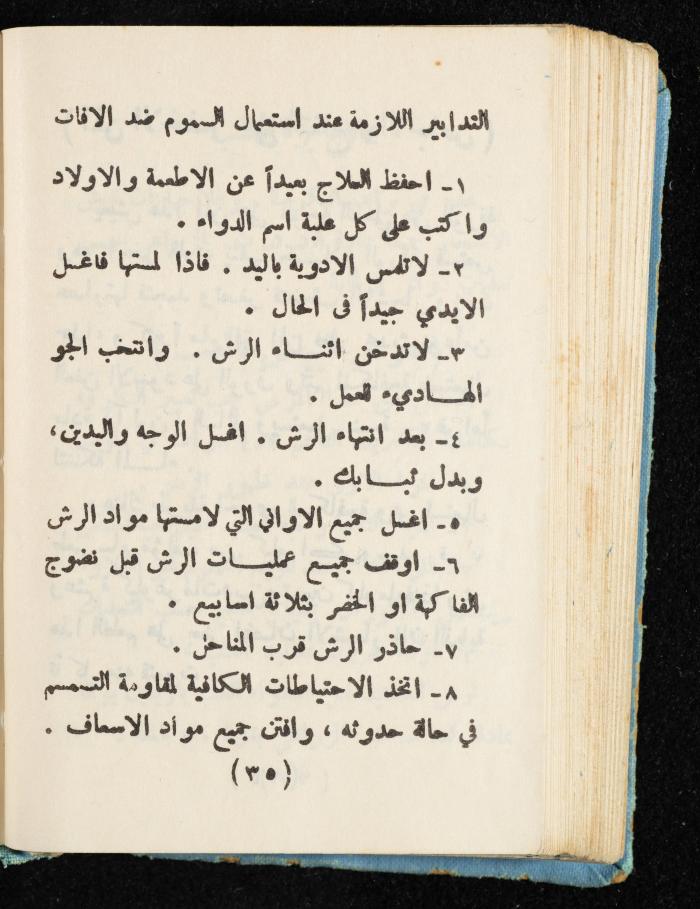 التدابير اللازمة عند استعمال السموم ضد الافات
١ـ احفظ العلاج بعيداً عن الاطعمة والاولاد
واكتب على كل علبة اسم الدواء .
٢ـ لاتلمس الادوية باليد . فاذا لمستها فاغسل
الايدي جيداً في الحال .
٣ـ لاتدخن اثنـاء الرش . وانتخب الجو
الهـاديء للعمل .
٤ـ بعد انتهاء الرش . اغسل الوجه واليدين،
وبدل ثيـابك .
٥ـ اغسل جميع الاواني التي لامستها مواد الرش
٦ـ اوقف جميـع عمليـات الرش قبل نضوج
الفاكهة او الخضر بثلاثة اسابيع .
٧ـ حاذر الرش قرب المناحل .
٨ـ اتخذ الاحتياطات الكافية لمقاومة التسمم
في حالة حدوثه ، واقتن جميع مواد الاسعاف .
(٣٥)